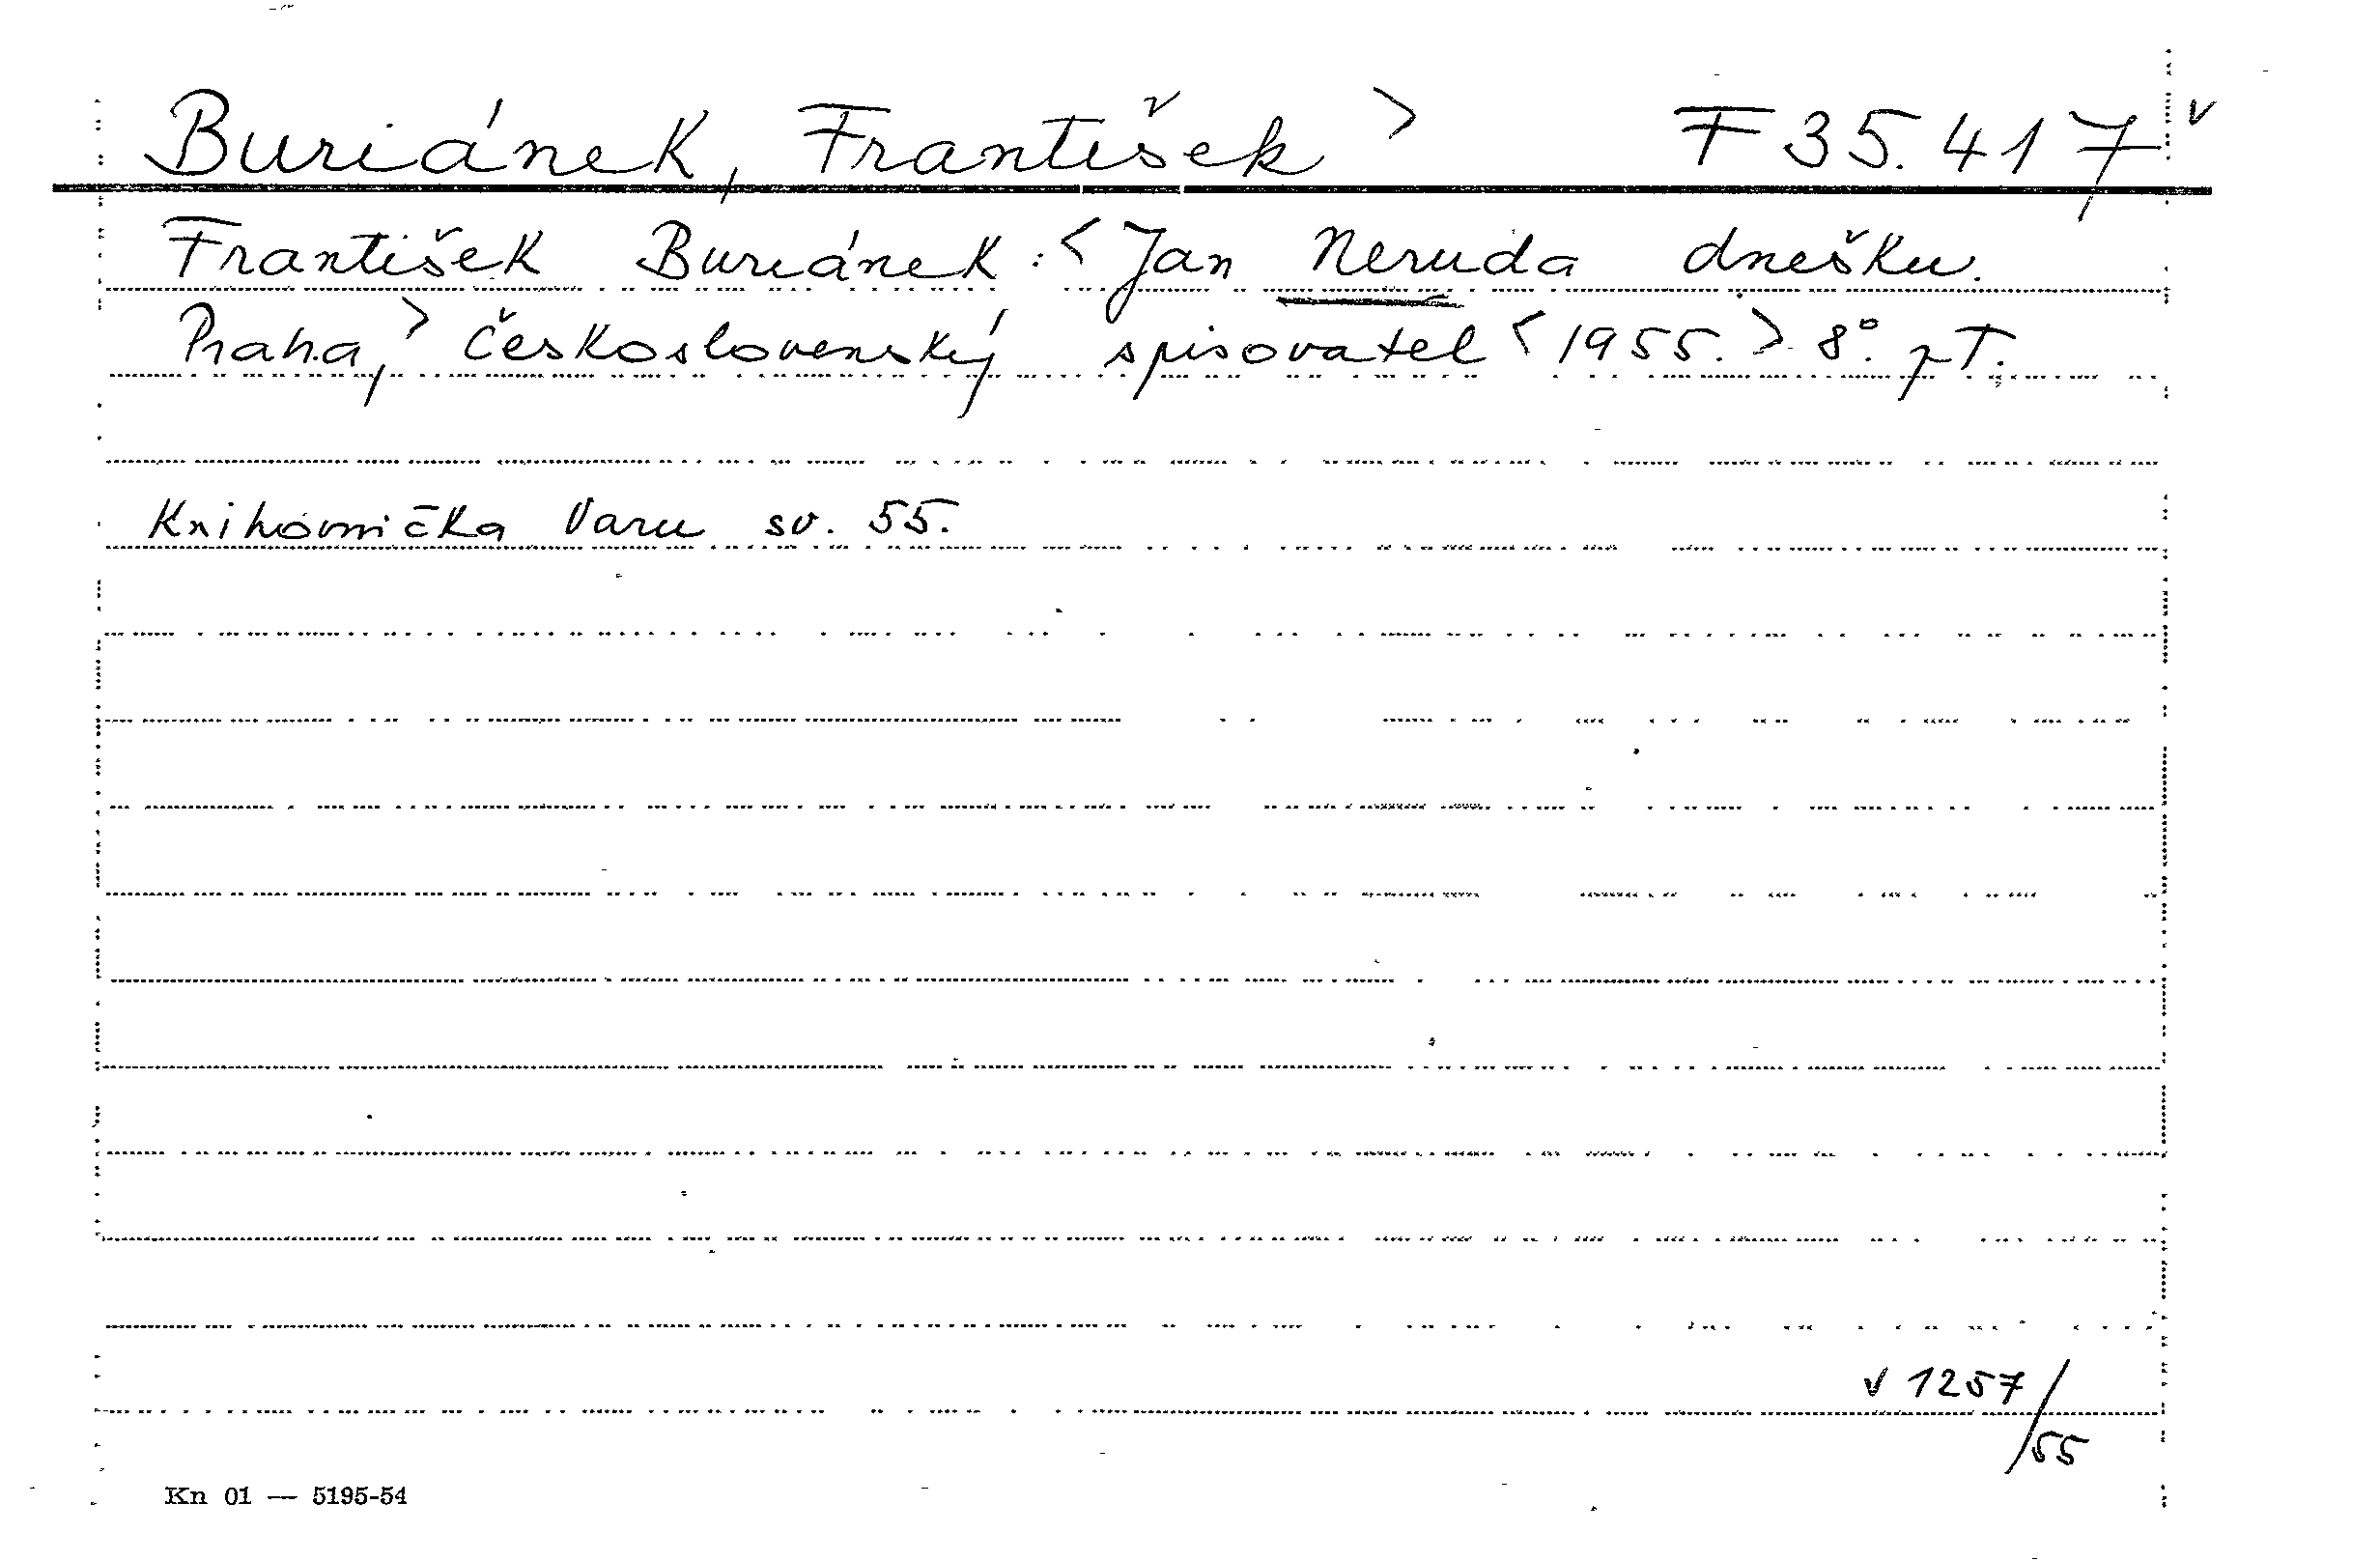 Buriánek, František > F 35.417 v
František Buriánek: < Jan Neruda dnešku.
Praha, > Československý spisovatel < 1955. > 8°. pT.
Knihovnička Varu sv. 55.
v 1257/55
Kn 01 — 5195-54